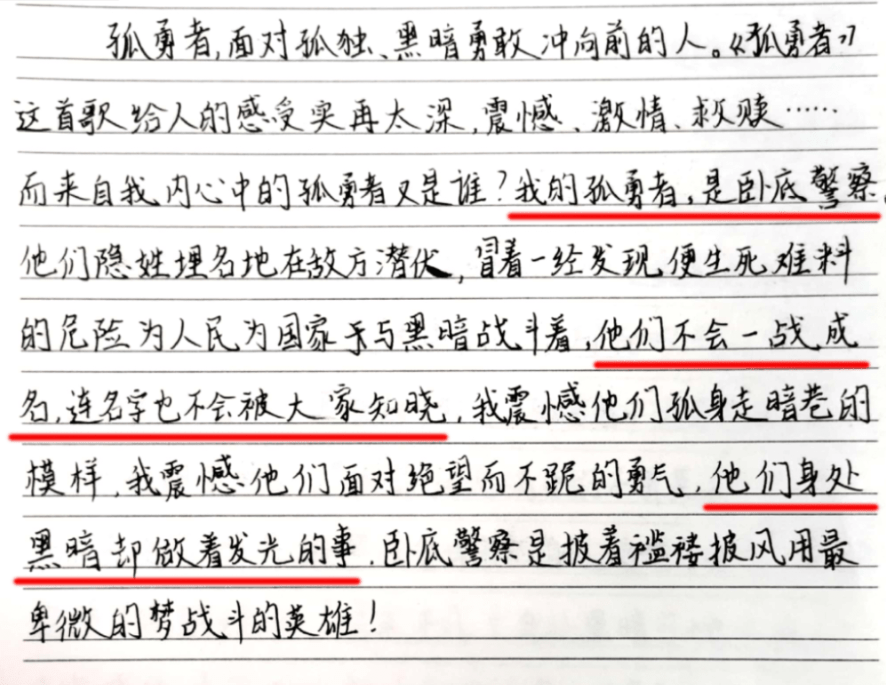 孤勇者,面对孤独、黑暗勇敢冲向前的人。《孤勇者》
这首歌给人的感受实再太深,震憾、激情、救赎……
而来自我内心中的孤勇者又是谁?我的孤勇者,是卧底警察,
他们隐姓埋名地在敌方潜伏,冒着一经发现便生死难料
的危险为人民为国家于与黑暗战斗着,他们不会一战成
名,连名字也不会被大家知晓,我震憾他们孤身走暗巷的
模样,我震憾他们面对绝望而不跪的勇气,他们身处
黑暗却做着发光的事.卧底警察是披着褴褛披风用最
卑微的梦战斗的英雄!